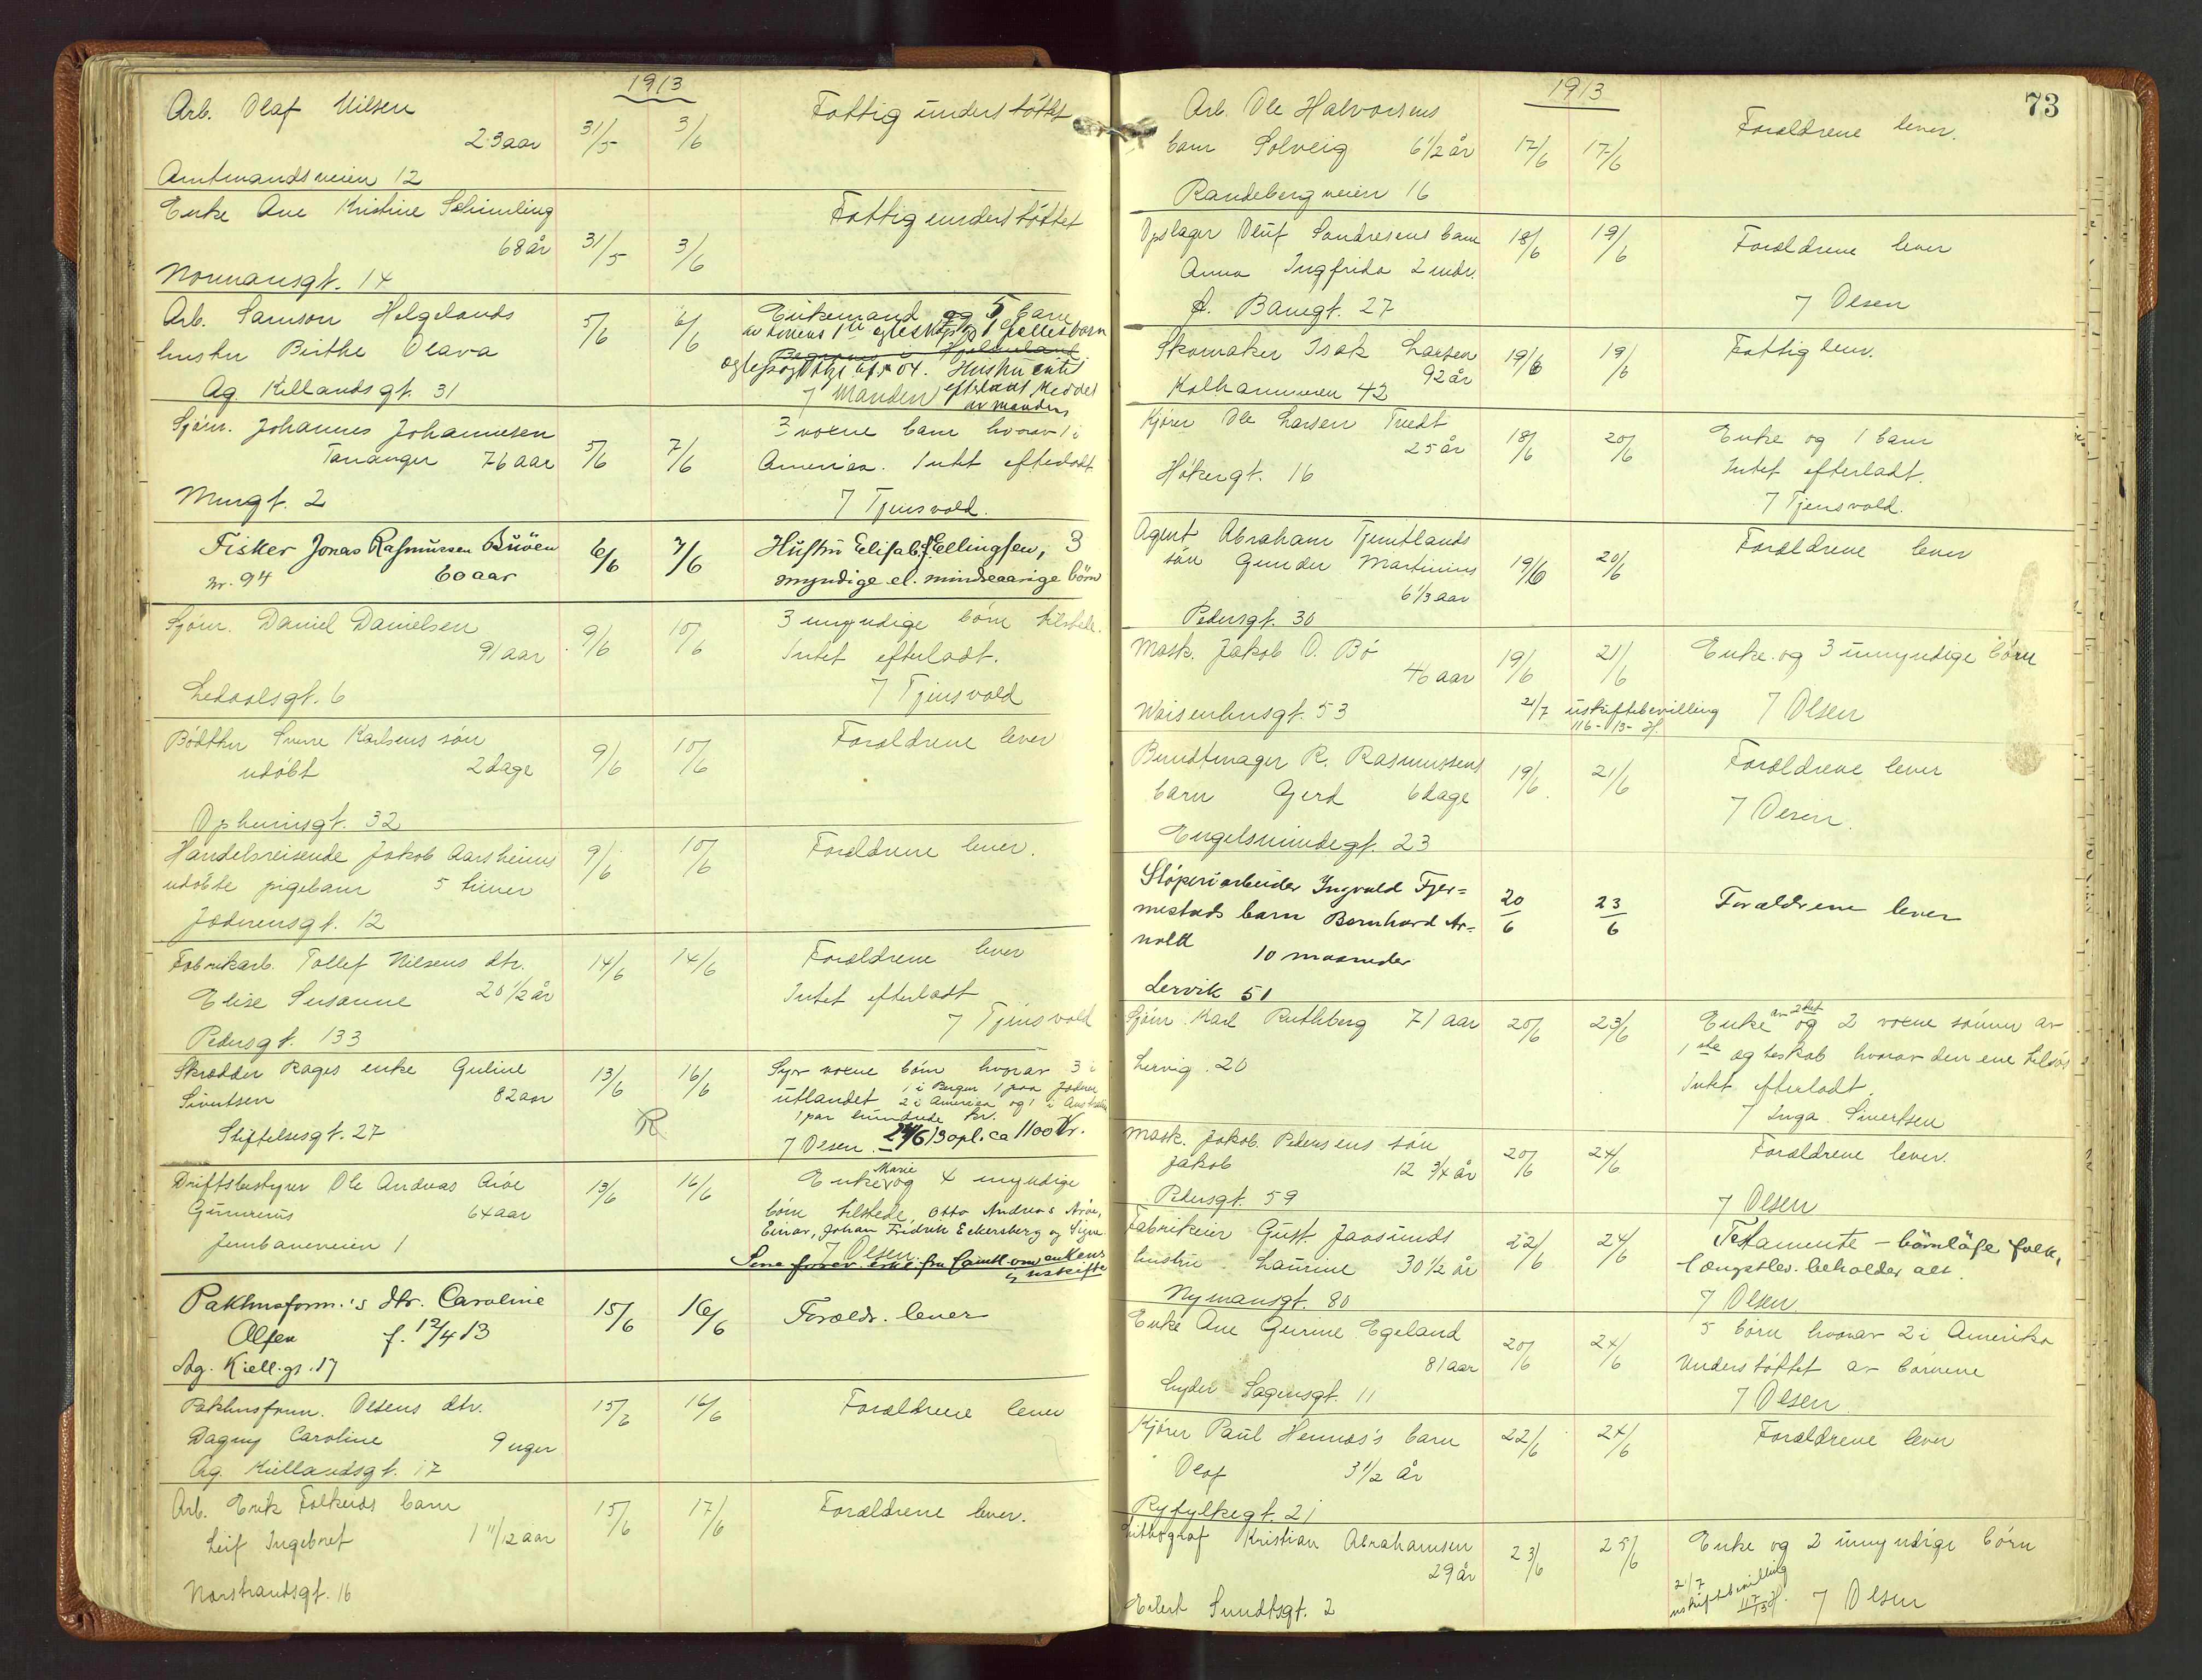 1913
Arb. Olaf Nilsen
Fattig understöttet
23 aar 31/5 3/6
Amtmandsveien 12
Enke Ane Kristine Schimling
Fattig understöttet
68 år 31/5 3/6
Normansgt. 14
Arb. Samson Helgelands
Enkemand og 5 barn
5/6 6/6
hustru Birthe Olava
Hustru intet
Ag. Kiellandsgt. 31
7 Manden efterladt
av manden
Sjöm. Johannes Johannesen
3 voxne barn hvorav 1 i
Tananger 76 aar 5/6 7/6
Amerika. Intet efterladt
Murgt. 2
7 Tjensvold.
Fisker Jonas Rasmussen Buöen 6/6 7/6
Hustru Elisab. Ellingsen, 3
nr. 94 60 aar
myndige el. mindreaarige börn
Sjöm. Daniel Danielsen
3 umyndige börn tilstede.
91 aar 9/6 10/6
Intet efterladt.
Ledaalsgt. 6
7 Tjensvold
Bödtker Sverre Karlsens sön
Forældrene lever
udöbt 2 dage 9/6 10/6
Opheimsgt. 32
Handelsreisende Jakob Aarsheims 9/6 10/6
Forældrene lever.
udöbte pigebarn 5 timer
Jæderensgt. 12
Fabrikarb. Tollef Nilsens dtr. 14/6 14/6
Forældrene lever
Elise Susanne 20 1/2 år
Intet efterladt
Pedersgt. 133
7 Tjensvold
Skrædder Rages enke Guline 13/6 16/6
Syv voxne börn hvorav 3 i
Sivertsen 82 aar
utlandet 1 i Bergen 1 paa Jæderen
2 i Amerika og 1 i
1 par hundrede kr.
Stiftelsesgt. 27 R
7 Olsen. 24/6 13 opl. ca 1100 Kr.
Driftsbestyrer Ole Andreas Aröe 13/6 16/6
Enke Marie og 4 umyndige
Gumrerus 64 aar
börn tilstede, Otto Andreas Aröe,
Einar, Johan Fredrik Eckersberg og Signe
Jernbaneveien 1
7 Olsen.
enkens
uskifte
Pakhusform.'s dtr. Caroline 15/6 16/6
Forældr. lever
Olsen f. 12/4 13
Ag. Kiell.gt. 17
Pakhusform. Olsens dtr. 15/6 16/6
Forældrene lever
Dagny Caroline 9 uger
Ag. Kiellandsgt. 17
Arb. Erik Falkeids barn 15/6 17/6
Forældrene lever.
Leif Ingebret 1 11/12 aar
Norstrandsgt. 16
1913
73
Arb. Ole Halvorsens
Forældrene lever.
barn Solveig 6 1/2 år 17/6 17/6
Randebergveien 16
Opslager Oluf Sandresens barn 18/6 19/6
Forældrene lever
Anna Ingfrida 2 mdr.
Banegt. 27
7 Olsen
Skomaker Isak Larsen 19/6 19/6
Fattiglem.
92 år
Kalhammeren 42
Kjörer Ole Larsen Tvedt 18/6 20/6
Enke og 1 barn
25 år
Intet efterladt.
Hökergt. 16
7 Tjensvold.
Agent Abraham Tjemtlands 19/6 20/6
Forældrene lever
sön Gunder Martinius
6 1/3 aar
Pedersgt. 30
Mask. Jakob O. Bö 19/6 21/6
Enke og 3 umyndige börn
46 aar
Waisenhusgt. 53
21/7 uskiftebevilling
116-13-
7 Olsen
Bundtmager R. Rasmussens 19/6 21/6
Forældrene lever
barn Gerd 6 dage
7 Olsen.
Engelsmindegt. 23
Stöperiarbeider Ingvald Fjer-
20/6 23/6
Forældrene lever
mestads barn Bernhard Ar-
nold 10 maaneder
Lervik 51
Sjöm. Karl Ruthberg 71 aar 20/6 23/6
Enke av 2det og 2 voxne sönner av
Lervig 20
1ste ægteskab hvorav den ene tilsjös
Intet efterladt.
7 Inga Sivertsen
Mask. Jakob Pedersens sön 20/6 24/6
Forældrene lever.
Jakob 12 3/4 år
Pedersgt. 59
7 Olsen
Fabrikeier Gust. Jaasunds 22/6 24/6
Testamente - barnlöse folk,
hustru Laurine 30 1/2 år
længstlev. beholder alt.
Nymansgt. 80
7 Olsen.
Enke Ane Gurine Egeland 20/6 24/6
5 börn hvorav 2 i Amerika
81 aar
Understöttet av börnene
Lyder Sagensgt. 11
7 Olsen.
Kjörer Paul Hennøs's barn 22/6 24/6
Forældrene lever
Olaf 3 1/2 år
Ryfylkegt. 21
Lithograf Kristian Abrahamsen 23/6 25/6
Enke og 2 umyndige börn
29 år
21/7
uskiftebevilling
117/13
Eilert Sundtsgt. 2
7 Olsen